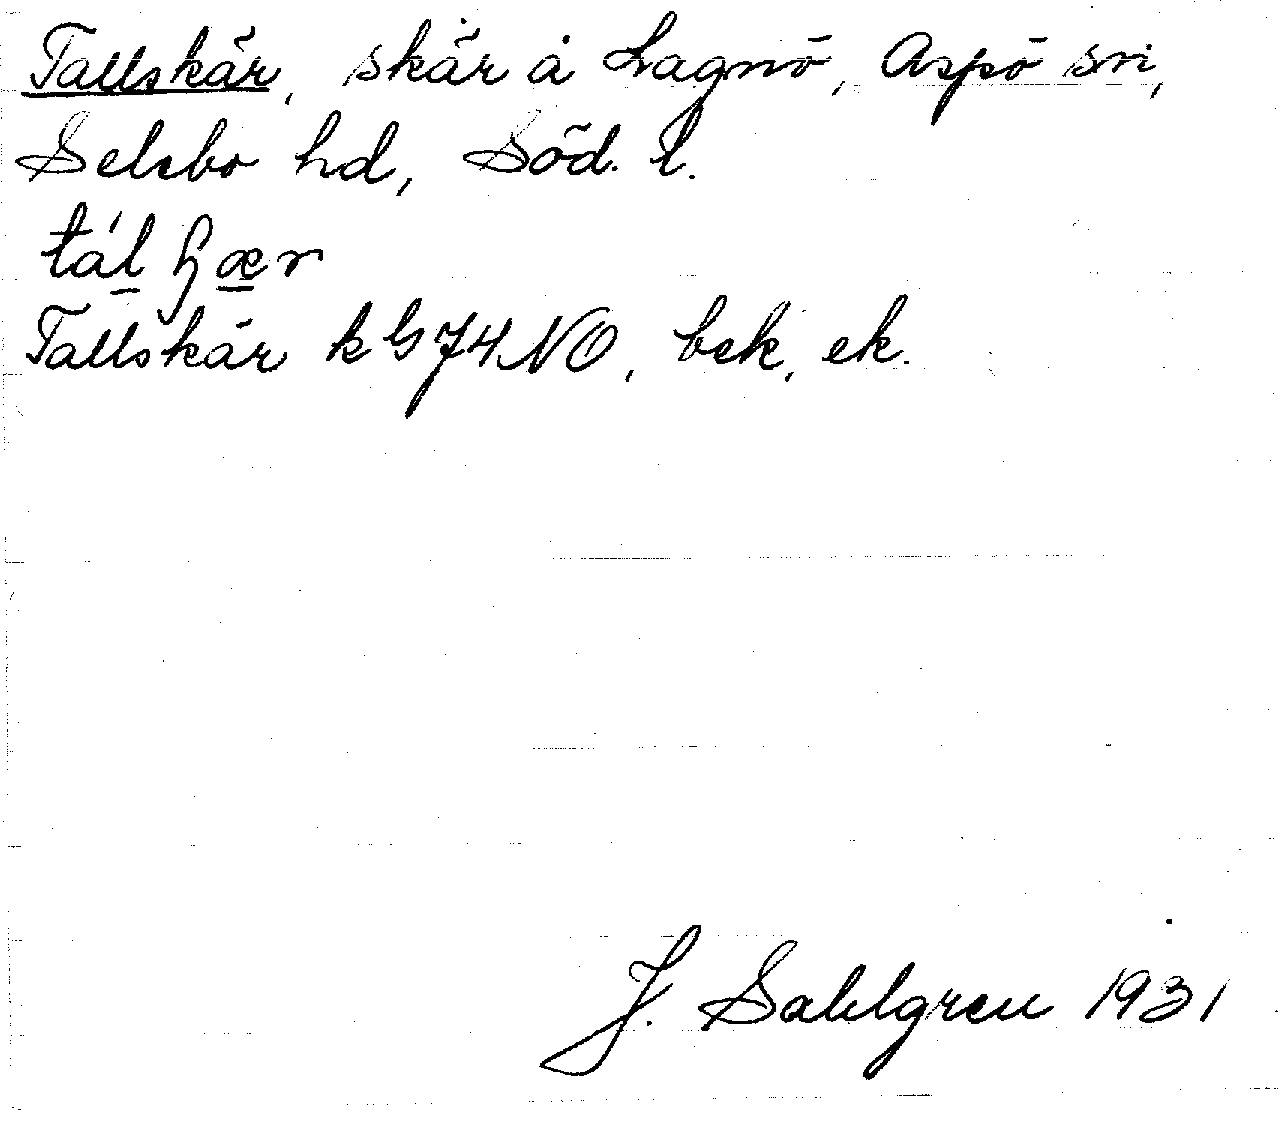 Tallskär, skär å Lagnö, Aspö sn,
Selebo hd, Söd. l.
tálɧær
Tallskär k bl 74 NO, bek. ek.
J. Sahlgren 1931